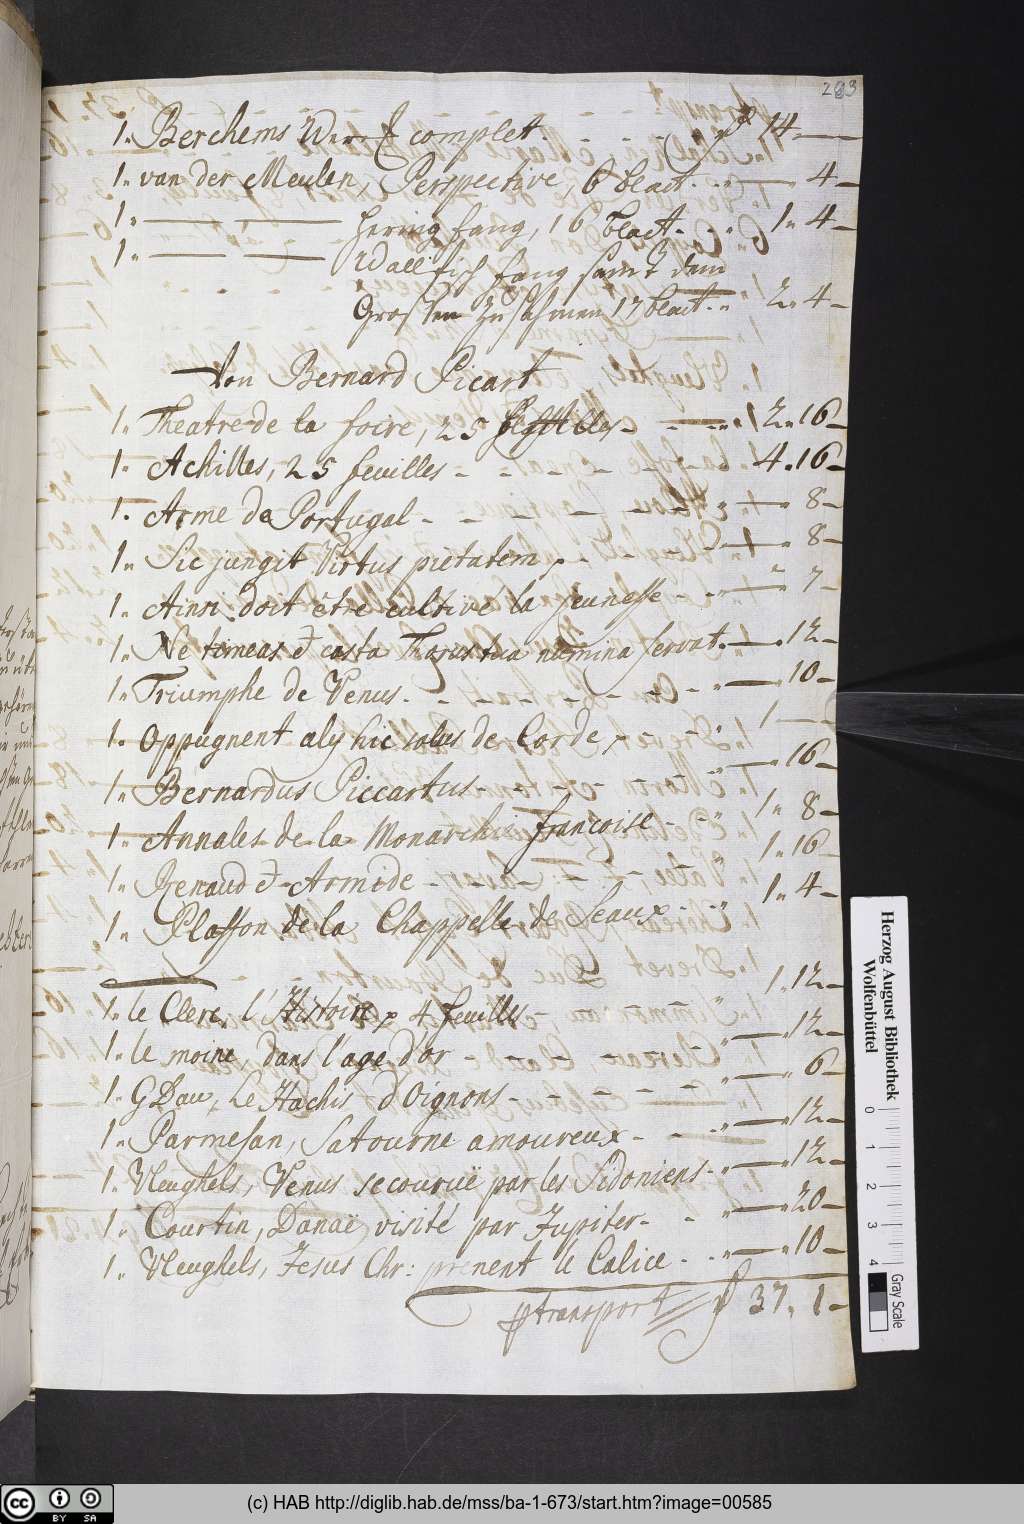 283
1. Berchems Werck complet. 14 —
1. van der Meulen, Perspective, 6 blaet. 4 —
1. — — hering fang, 16 blaet. 1. 4 —
1. — — Wallfisch fang samt dem
Grosten zusahmen 17 blaet. 2. 4 —
Von Bernard Picart
1. Theatre de la foire, 25 2. 16 —
1. Achilles, 25 feuilles 4. 16 —
1. Arme de Portugal 8 —
1. Sic jungit Virtus pietatem 8 —
1. Ainsi doit être cultivé la jeunesse 7 —
1. Ne timeas & casta tua numina servat. 12 —
1. Triumphe de Venus. 10 —
1. Oppugnent alÿ hic solus de Corde 1 —
1. Bernardus Piccartus 16 —
1. Annales de la Monarchie françoise 1. 8 —
1. Renaud & Armide 1. 16 —
1. Plaffon de la Chappelle de Seaux 1. 4 —
1. le Clerc, l'Histoire 4 feuilles 1. 12 —
1. le moine, dans l'age d'or 12 —
1. G Dau, Le Hachis d'Oignons 6 —
1. Parmesan, Satourne amoureux 12 —
1. Vleughels, Venus secouruë par les Sidoniens 12 —
1. Courtin, Danaë visité par Jupiter 20 —
1. Vleughels, Jesus Chr: prenent le Calice 10 —
transport 37. 1 —
Herzog August Bibliothek
Wolfenbüttel
0 1 2 3 4
Gray Scale
cc BY SA
(c) HAB http://diglib.hab.de/mss/ba-1-673/start.htm?image=00585